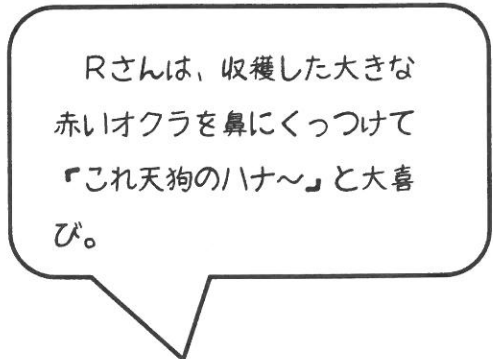 Rさんは、収穫した大きな
赤いオクラを鼻にくっつけて
『これ天狗のハナ～』と大喜
び。